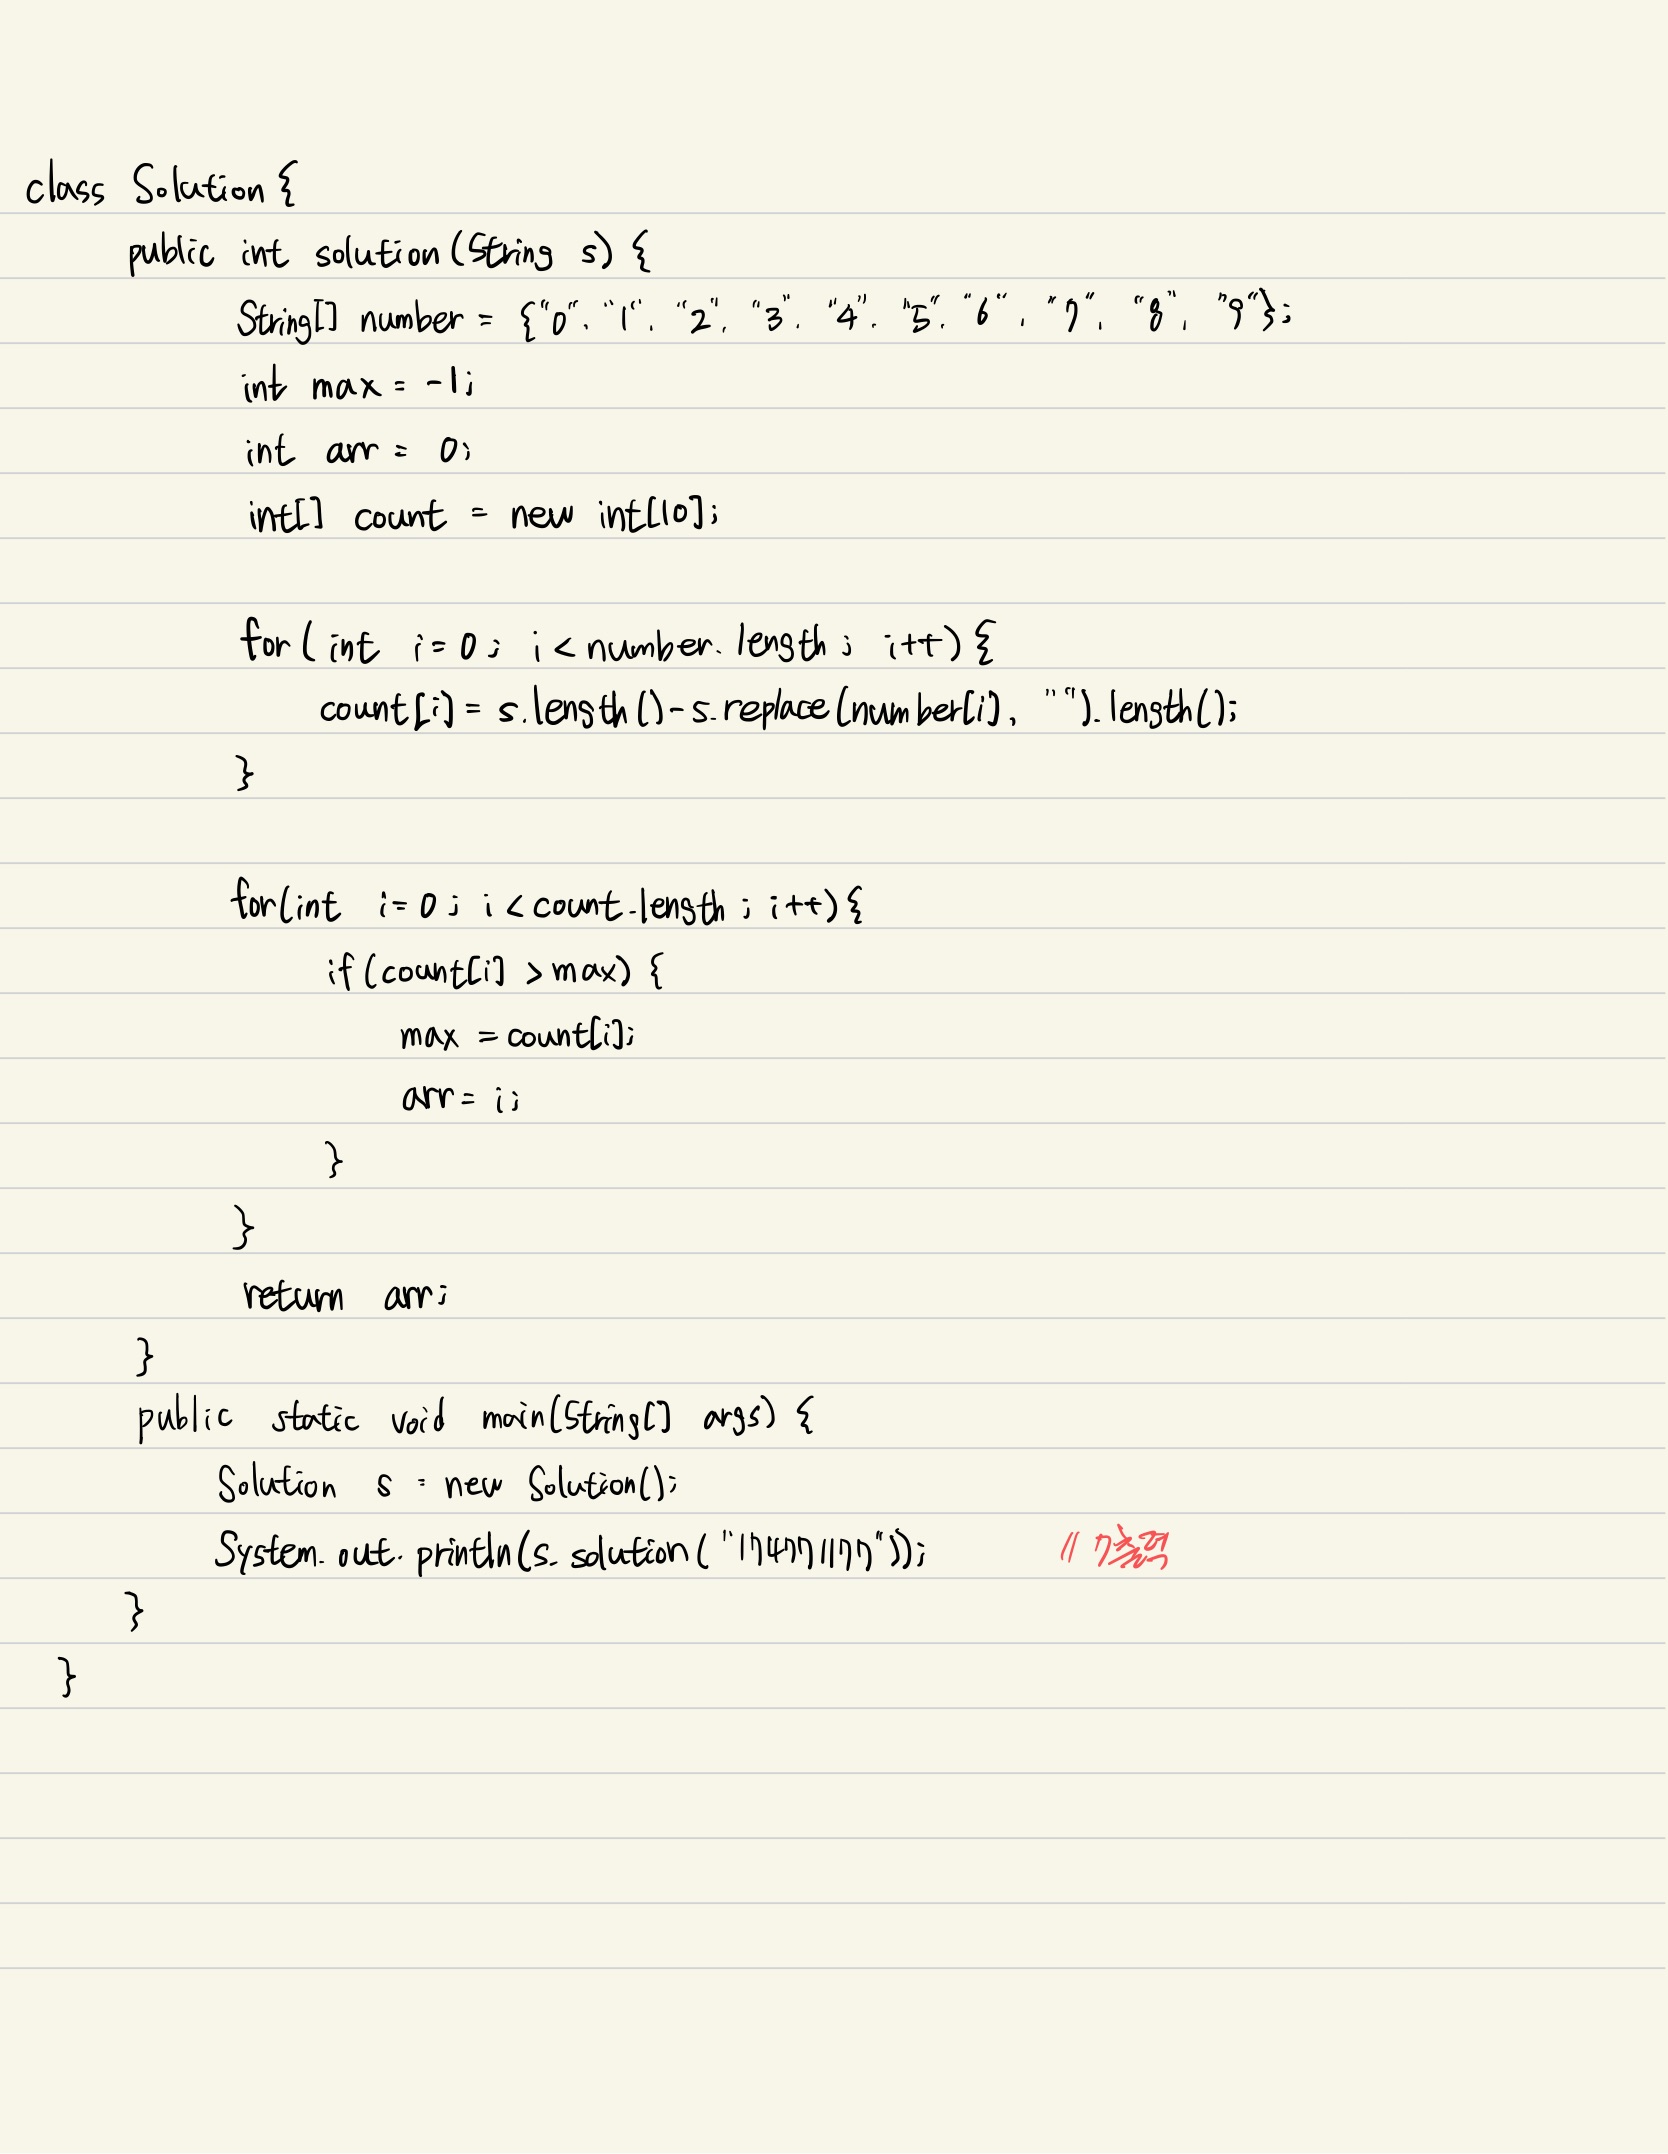 class Solution {
public int solution(String s) {
String[] number = {"0", "1", "2", "3", "4", "5", "6", "7", "8", "9"};
int max = -1;
int arr = 0;
int[] count = new int[10];
for( int i=0; i<number.length; i++) {
count[i] = s.length()-s.replace(number[i], "").length();
}
for(int i=0; i<count.length; i++){
if(count[i] >max) {
max = count[i];
arr= i;
}
}
return arr;
}
public static void main(String[] args) {
Solution s = new Solution();
System.out.println(s.solution("174771177")); // 7출력
}
}